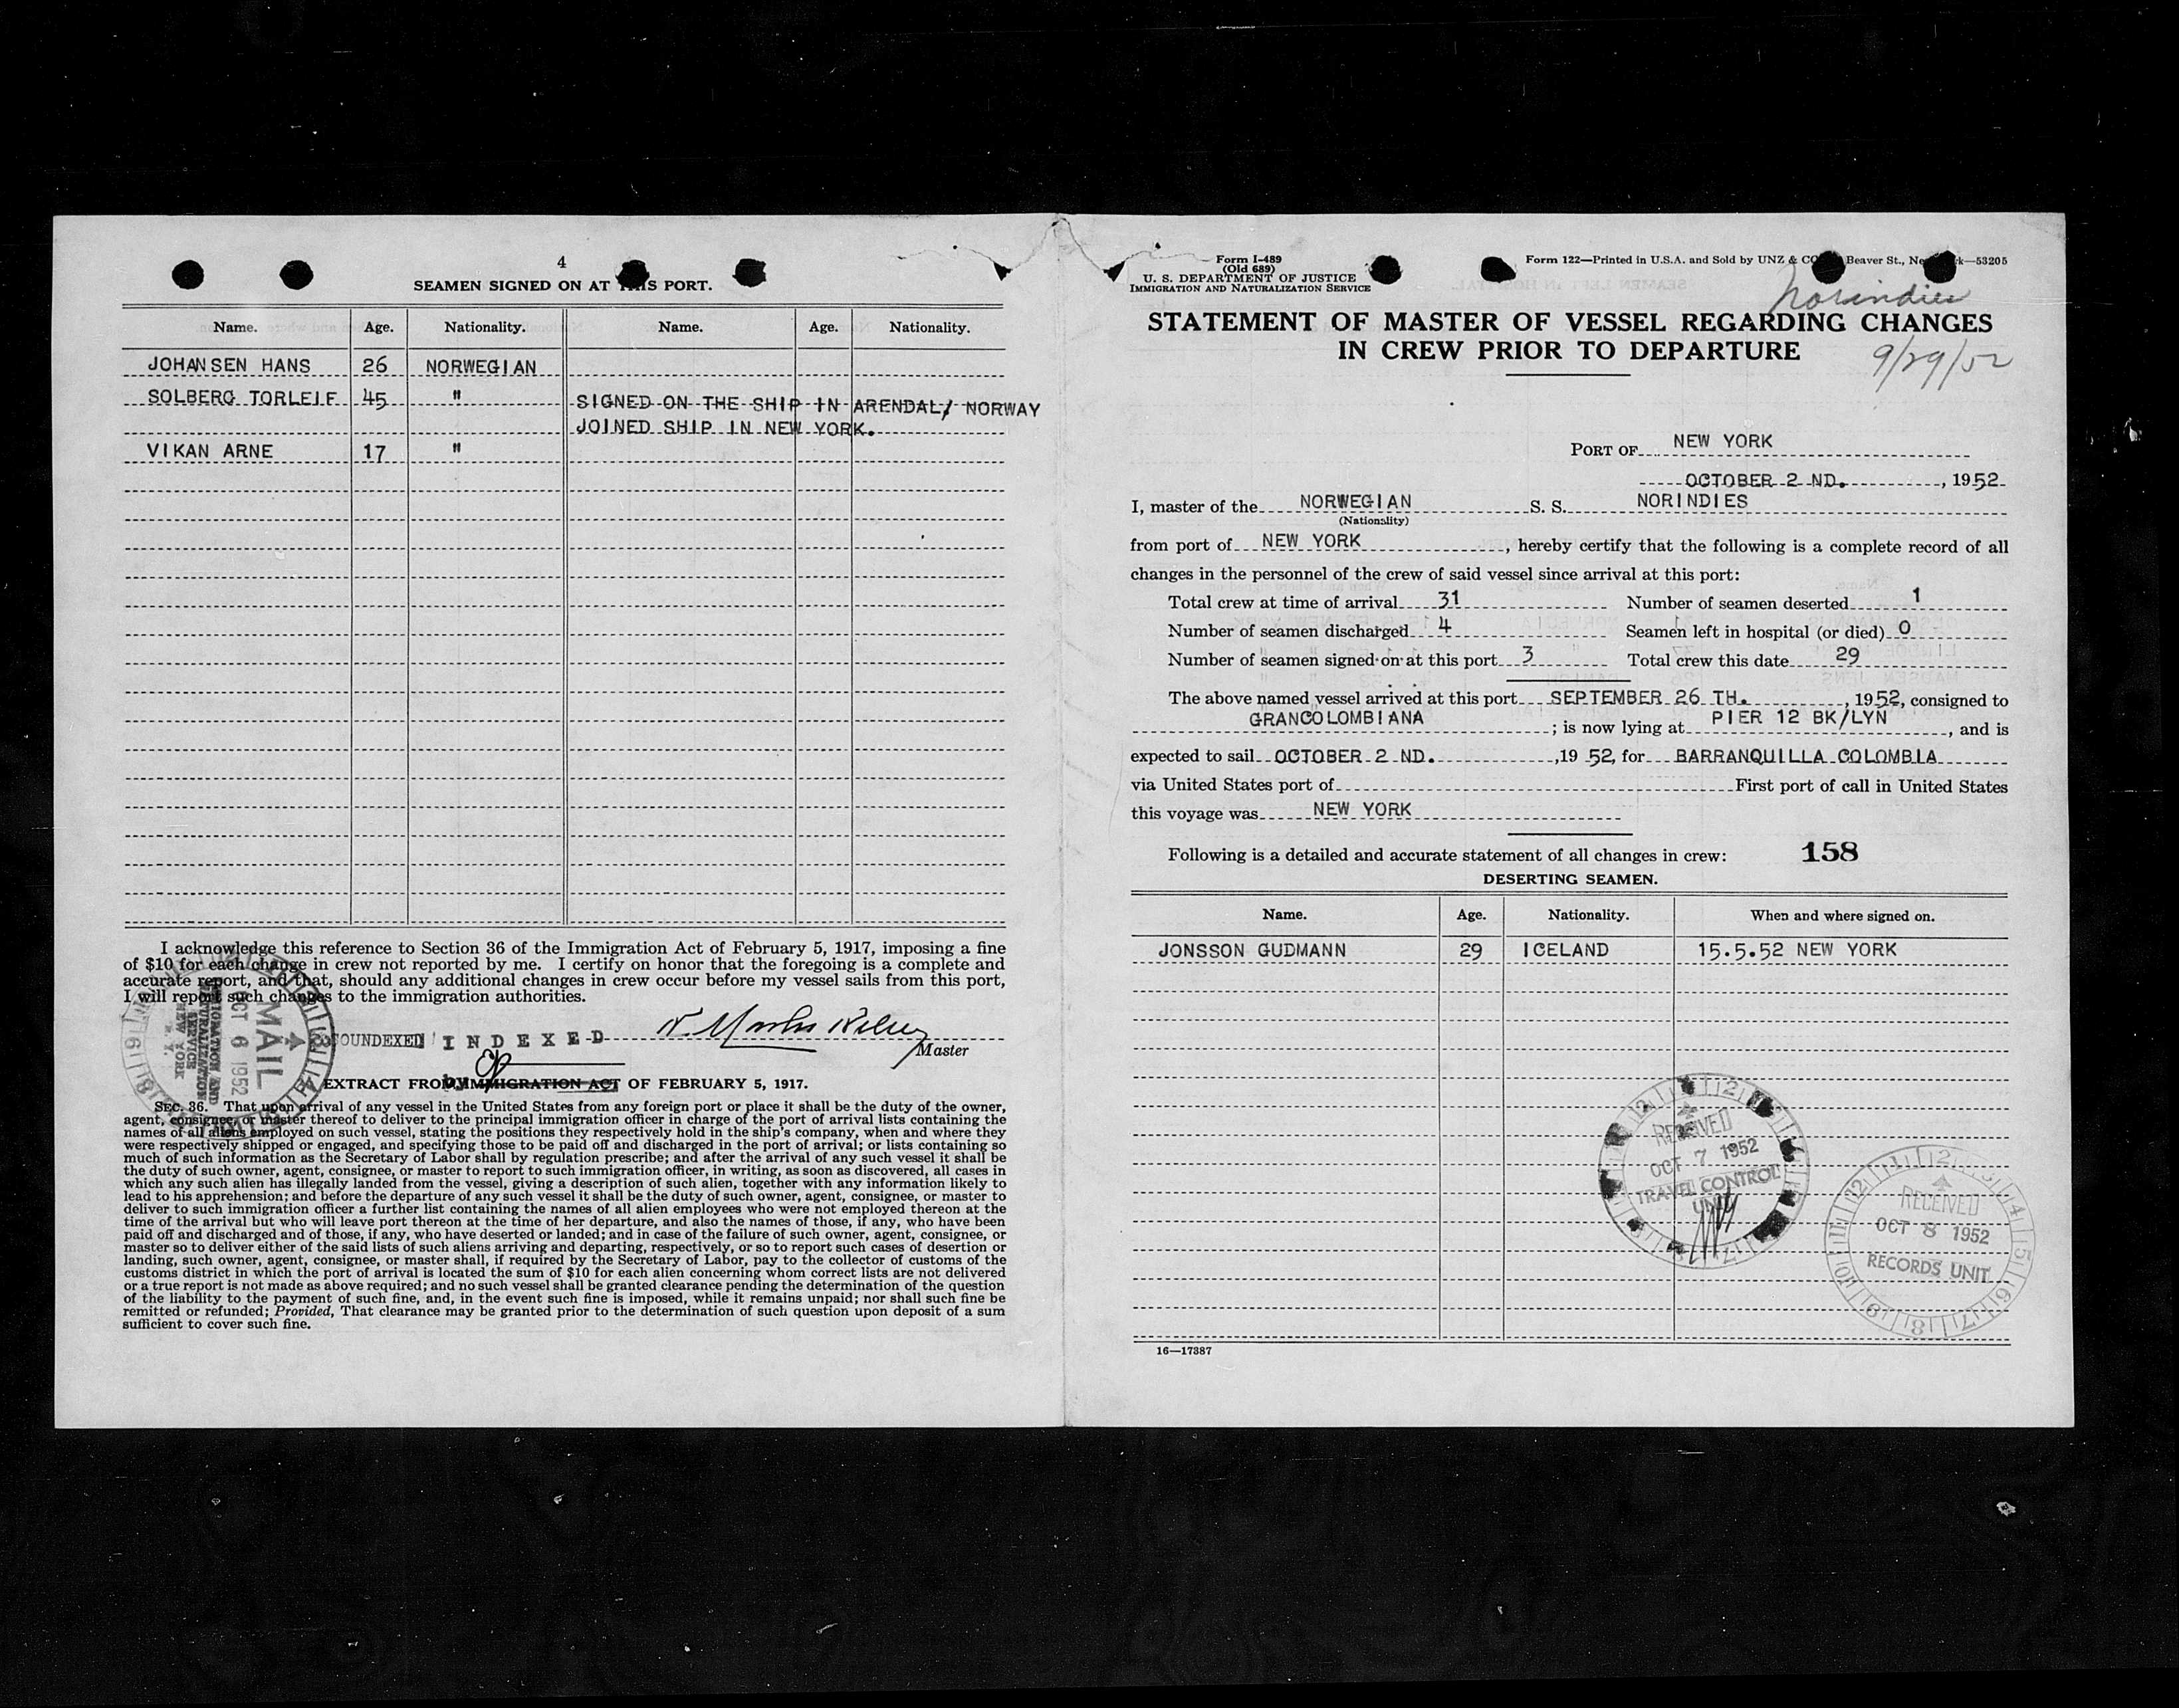 4
SEAMEN SIGNED ON AT THIS PORT.
Name. Age. Nationality. Name. Age. Nationality.
JOHANSEN HANS 26 NORWEGIAN
SOLBERG TORLEIF 45 " SIGNED ON THE SHIP IN ARENDAL/ NORWAY
JOINED SHIP IN NEW YORK.
VIKAN ARNE 17 "
I acknowledge this reference to Section 36 of the Immigration Act of February 5, 1917, imposing a fine
of $10 for each change in crew not reported by me. I certify on honor that the foregoing is a complete and
accurate report, and that, should any additional changes in crew occur before my vessel sails from this port,
I will report such changes to the immigration authorities.
INDEXED
Master
MAIL
OCT 6 1952
IMMIGRATION AND
NATURALIZATION
SERVICE
NEW YORK
N. Y.
EXTRACT FROM IMMIGRATION ACT OF FEBRUARY 5, 1917.
by
SEC. 36. That upon arrival of any vessel in the United States from any foreign port or place it shall be the duty of the owner,
agent, consignee, or master thereof to deliver to the principal immigration officer in charge of the port of arrival lists containing the
names of all aliens employed on such vessel, stating the positions they respectively hold in the ship's company, when and where they
were respectively shipped or engaged, and specifying those to be paid off and discharged in the port of arrival; or lists containing so
much of such information as the Secretary of Labor shall by regulation prescribe; and after the arrival of any such vessel it shall be
the duty of such owner, agent, consignee, or master to report to such immigration officer, in writing, as soon as discovered, all cases in
which any such alien has illegally landed from the vessel, giving a description of such alien, together with any information likely to
lead to his apprehension; and before the departure of any such vessel it shall be the duty of such owner, agent, consignee, or master to
deliver to such immigration officer a further list containing the names of all alien employees who were not employed thereon at the
time of the arrival but who will leave port thereon at the time of her departure, and also the names of those, if any, who have been
paid off and discharged and of those, if any, who have deserted or landed; and in case of the failure of such owner, agent, consignee, or
master so to deliver either of the said lists of such aliens arriving and departing, respectively, or so to report such cases of desertion or
landing, such owner, agent, consignee, or master shall, if required by the Secretary of Labor, pay to the collector of customs of the
customs district in which the port of arrival is located the sum of $10 for each alien concerning whom correct lists are not delivered
or a true report is not made as above required; and no such vessel shall be granted clearance pending the determination of the question
of the liability to the payment of such fine, and, in the event such fine is imposed, while it remains unpaid; nor shall such fine be
remitted or refunded; Provided, That clearance may be granted prior to the determination of such question upon deposit of a sum
sufficient to cover such fine.
Form I-489
(Old 689)
U. S. DEPARTMENT OF JUSTICE
IMMIGRATION AND NATURALIZATION SERVICE
Form 122—Printed in U.S.A. and Sold by UNZ & CO Beaver St., Ne k—53205
Norindies
STATEMENT OF MASTER OF VESSEL REGARDING CHANGES
IN CREW PRIOR TO DEPARTURE
9/29/52
PORT OF NEW YORK
OCTOBER 2 ND. , 1952
I, master of the NORWEGIAN S. S. NORINDIES
(Nationality)
from port of NEW YORK , hereby certify that the following is a complete record of all
changes in the personnel of the crew of said vessel since arrival at this port:
Total crew at time of arrival 31 Number of seamen deserted 1
Number of seamen discharged 4 Seamen left in hospital (or died) 0
Number of seamen signed on at this port 3 Total crew this date 29
The above named vessel arrived at this port SEPTEMBER 26 TH. , 1952, consigned to
GRANCOLOMBIANA ; is now lying at PIER 12 BK/LYN , and is
expected to sail OCTOBER 2 ND. ,19 52, for BARRANQUILLA COLOMBIA
via United States port of First port of call in United States
this voyage was NEW YORK
Following is a detailed and accurate statement of all changes in crew: 158
DESERTING SEAMEN.
Name. Age. Nationality. When and where signed on.
JONSSON GUDMANN 29 ICELAND 15.5.52 NEW YORK
RECEIVED
OCT 7 1952
TRAVEL CONTROL
UNIT
RECEIVED
OCT 8 1952
RECORDS UNIT
16—17387